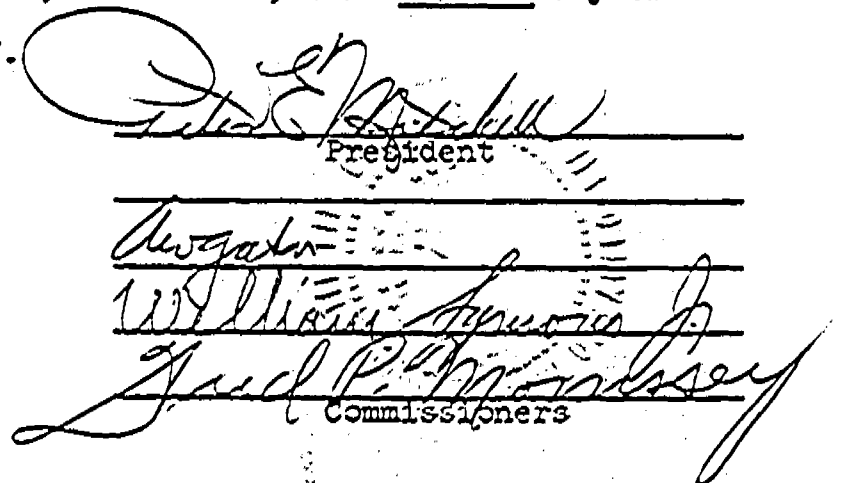 Peter E. Mitchell
President
A.W. Gatov
William Symons Jr
Fred P. Morrissey
Commissioners